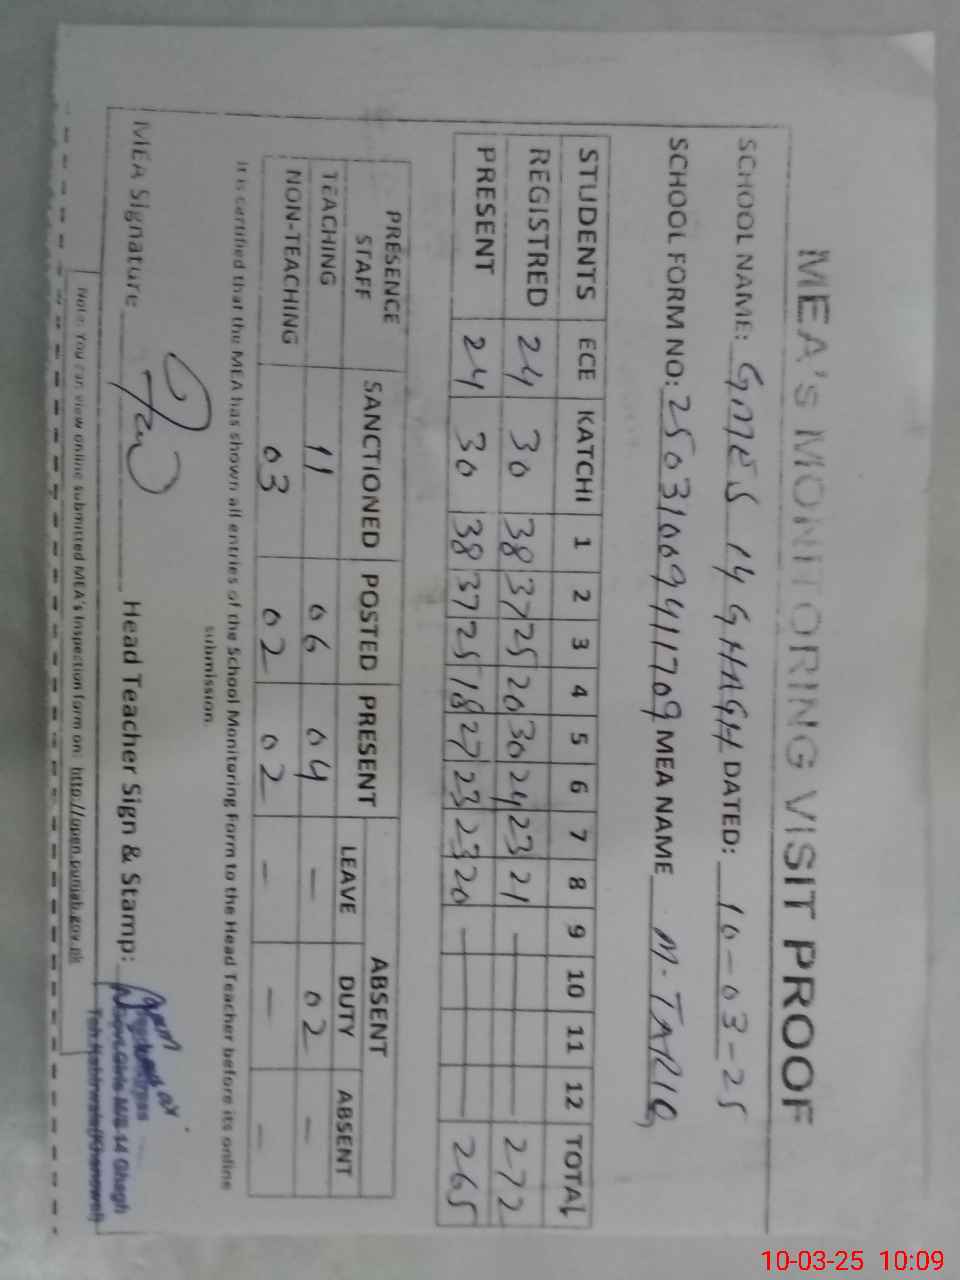 MEA'S MONITORING VISIT PROOF
SCHOOL NAME: GMES 14 GHAGH DATED: 10-03-25
SCHOOL FORM NO: 25031009411709 MEA NAME M. TARIQ
STUDENTS ECE KATCHI 1 2 3 4 5 6 7 8 9 10 11 12 TOTAL
REGISTRED 24 30 38 37 25 20 30 24 23 21 — 272
PRESENT 24 30 38 37 25 18 27 23 23 20 — 265
PRESENCE STAFF SANCTIONED POSTED PRESENT ABSENT
LEAVE DUTY ABSENT
TEACHING 11 06 04 — 02 —
NON-TEACHING 03 02 02 — — —
It is certified that the MEA has shown all entries of the School Monitoring Form to the Head Teacher before its online
submission.
MEA Signature Head Teacher Sign & Stamp:
Girls M/E 14 Ghagh
Teh: Kabirwala (Khanewal)
Note: You can view online submitted MEA's Inspection form on: http://open.punjab.gov.pk
10-03-25 10:09